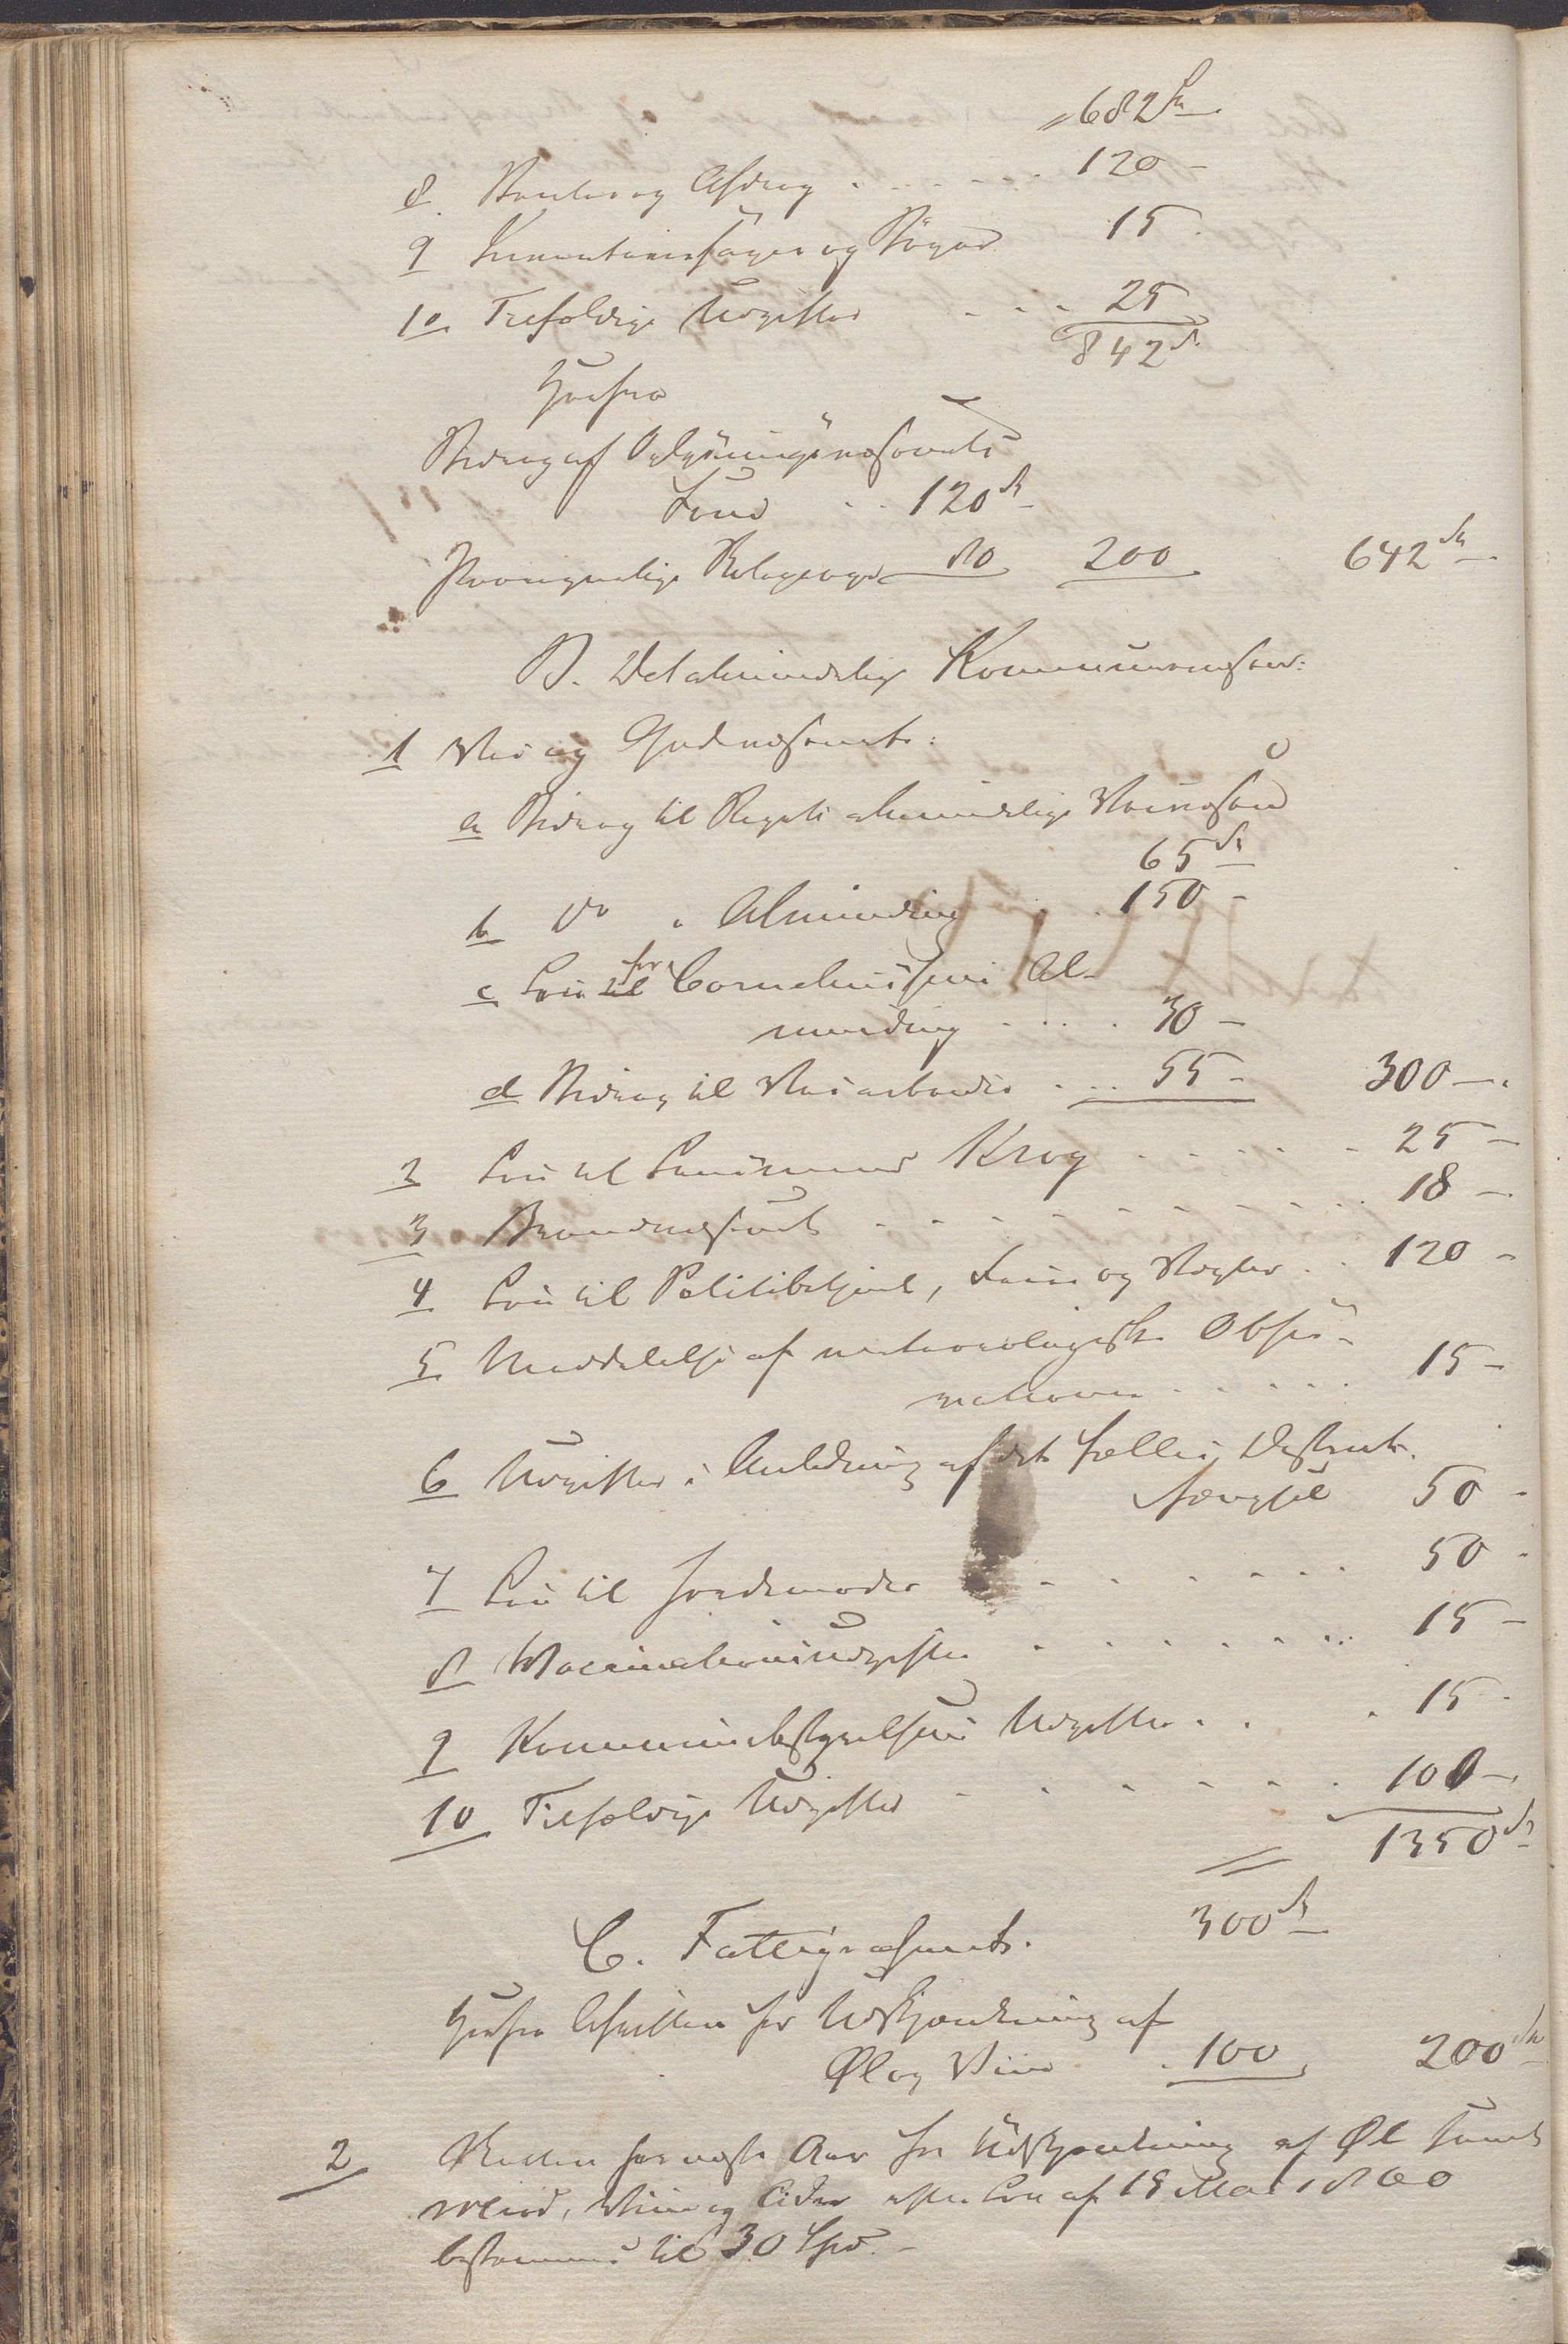 682 Sp
8 Renter og Afdrag . . . . . . 120 –
9 Inventariesager og Bøger 15 –
10 Tilfældige Udgifter . . . 25
842 Sp
Herfra
Bidrag af Oplysningsvæsenets
Fond . . 120 Sp
80 200 642 Sp
B. Det almindelige Kommunevæsen:
1 Vei og Gadevæsenet:
a Bidrag til Rigets almindelige Veivæsen
65 Sp
b Do „ Alminding . . 150 –
c Løn til for Al-
minding . . . . 30 –
d Bidrag til Veiarbeider . . . 55 – 300 –
2 Løn til Lensmand Krog . . . . . 25 –
3 Brandvæsenet . . . . . . . . . 18 –
4 Løn til Politibetjent, og Vægter . . 120 –
5 Meddelelse af meteorologiske Obser-
vationer . . . . . 15 –
6 Udgifter i Anledning af det fælles Distrikts-
fængsel 50 –
7 Løn til Jordemoder . . . . . . 50 –
8 Vaccinationsudgifter . . . . . . 15 –
9 Kommunebestyrelsens Udgifter . . . 15 –
10 Tilfældige Udgifter . . . . . . 100 –
1350 Sp
C. Fattigvæsenet. 300 Sp
Herfra Afgiften for Udskjænkning af
Øl og Viin . 100 200 Sp
2 for næste Aar for Udskjænkning af Øl samt
Mjød, Viin og Cider efter Lov af 19 Mai 1860
bestemmes til 30 Spd. –